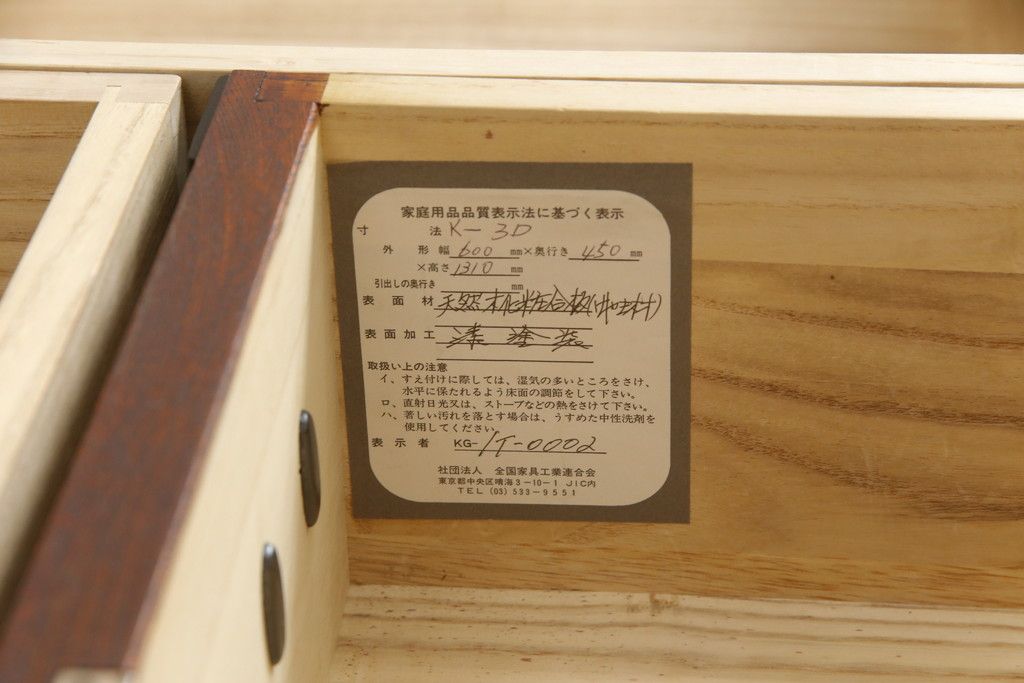 家庭用品品質表示法に基づく表示
寸法 K-3D
外形幅 600 mm×奥行き 450 mm
×高さ 1310 mm
引出しの奥行き mm
表面材 天然木化粧合板
表面加工 漆塗装
取扱い上の注意
イ、すえ付けに際しては、湿気の多いところをさけ、
水平に保たれるよう床面の調節をして下さい。
ロ、直射日光又は、ストーブなどの熱をさけて下さい。
ハ、著しい汚れを落とす場合は、うすめた中性洗剤を
使用してください。
表示者 KG-IT-0002
社団法人 全国家具工業連合会
東京都中央区晴海3-10-1 JIC内
TEL (03) 533-9551